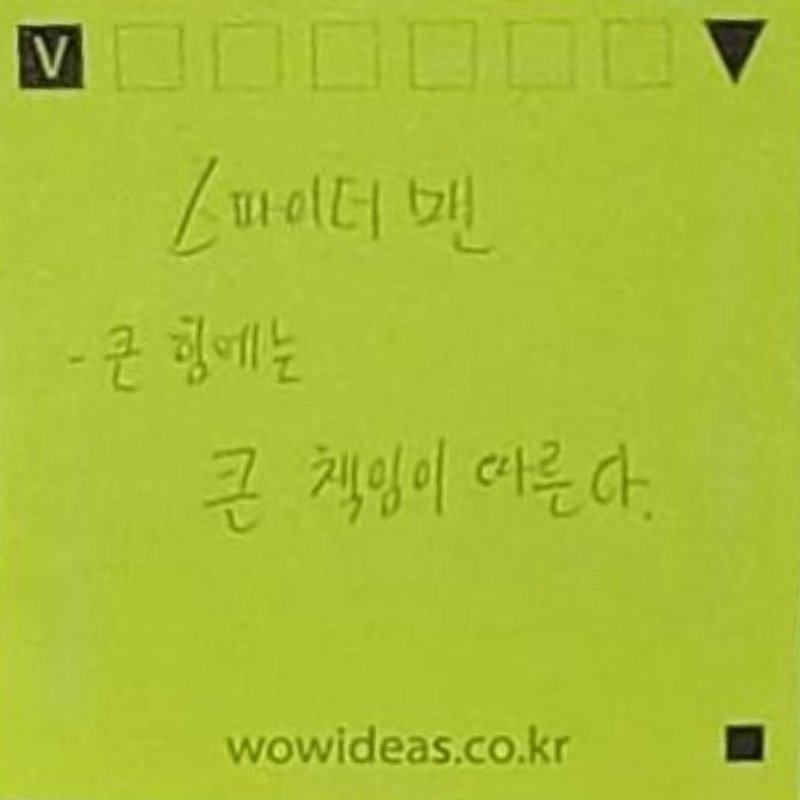 V
스파이더맨
- 큰 힘에는
큰 책임이 따른다.
wowideas.co.kr